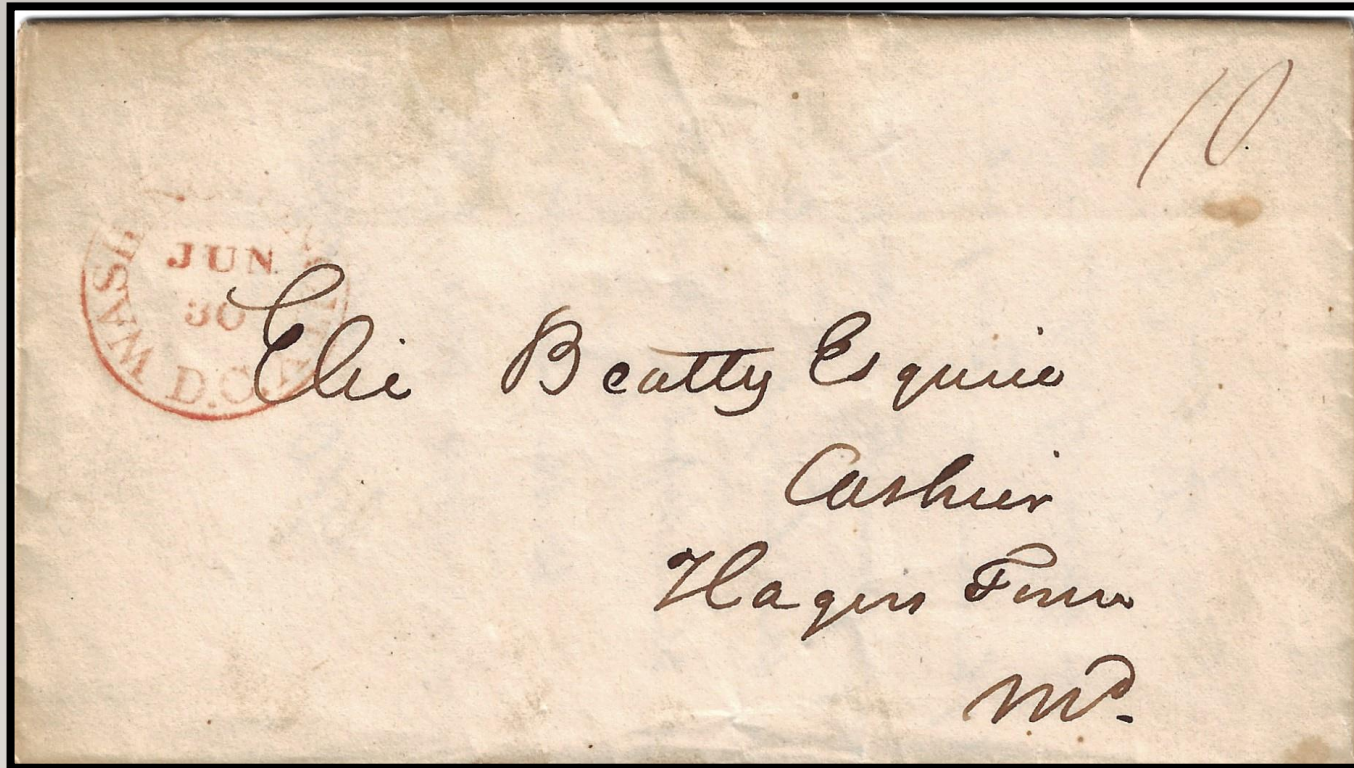 10
WASH
JUN
30
D.C.
Elie Beatty Esquire
Cashier
Hagers Town
Md.